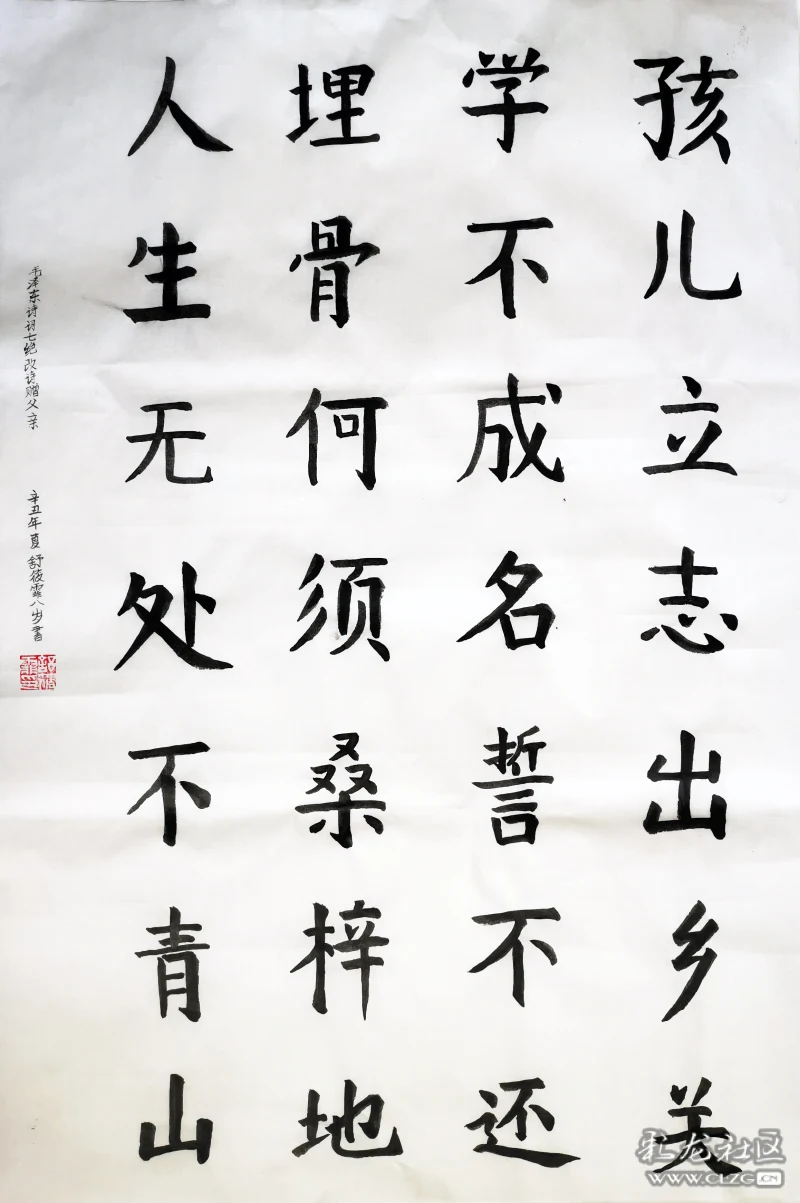 孩儿立志出乡关
学不成名誓不还
埋骨何须桑梓地
人生无处不青山
毛泽东诗词七绝改诗赠父亲
辛丑年夏 舒筱霏八岁书
化龙社区
WWW.CLZG.CN